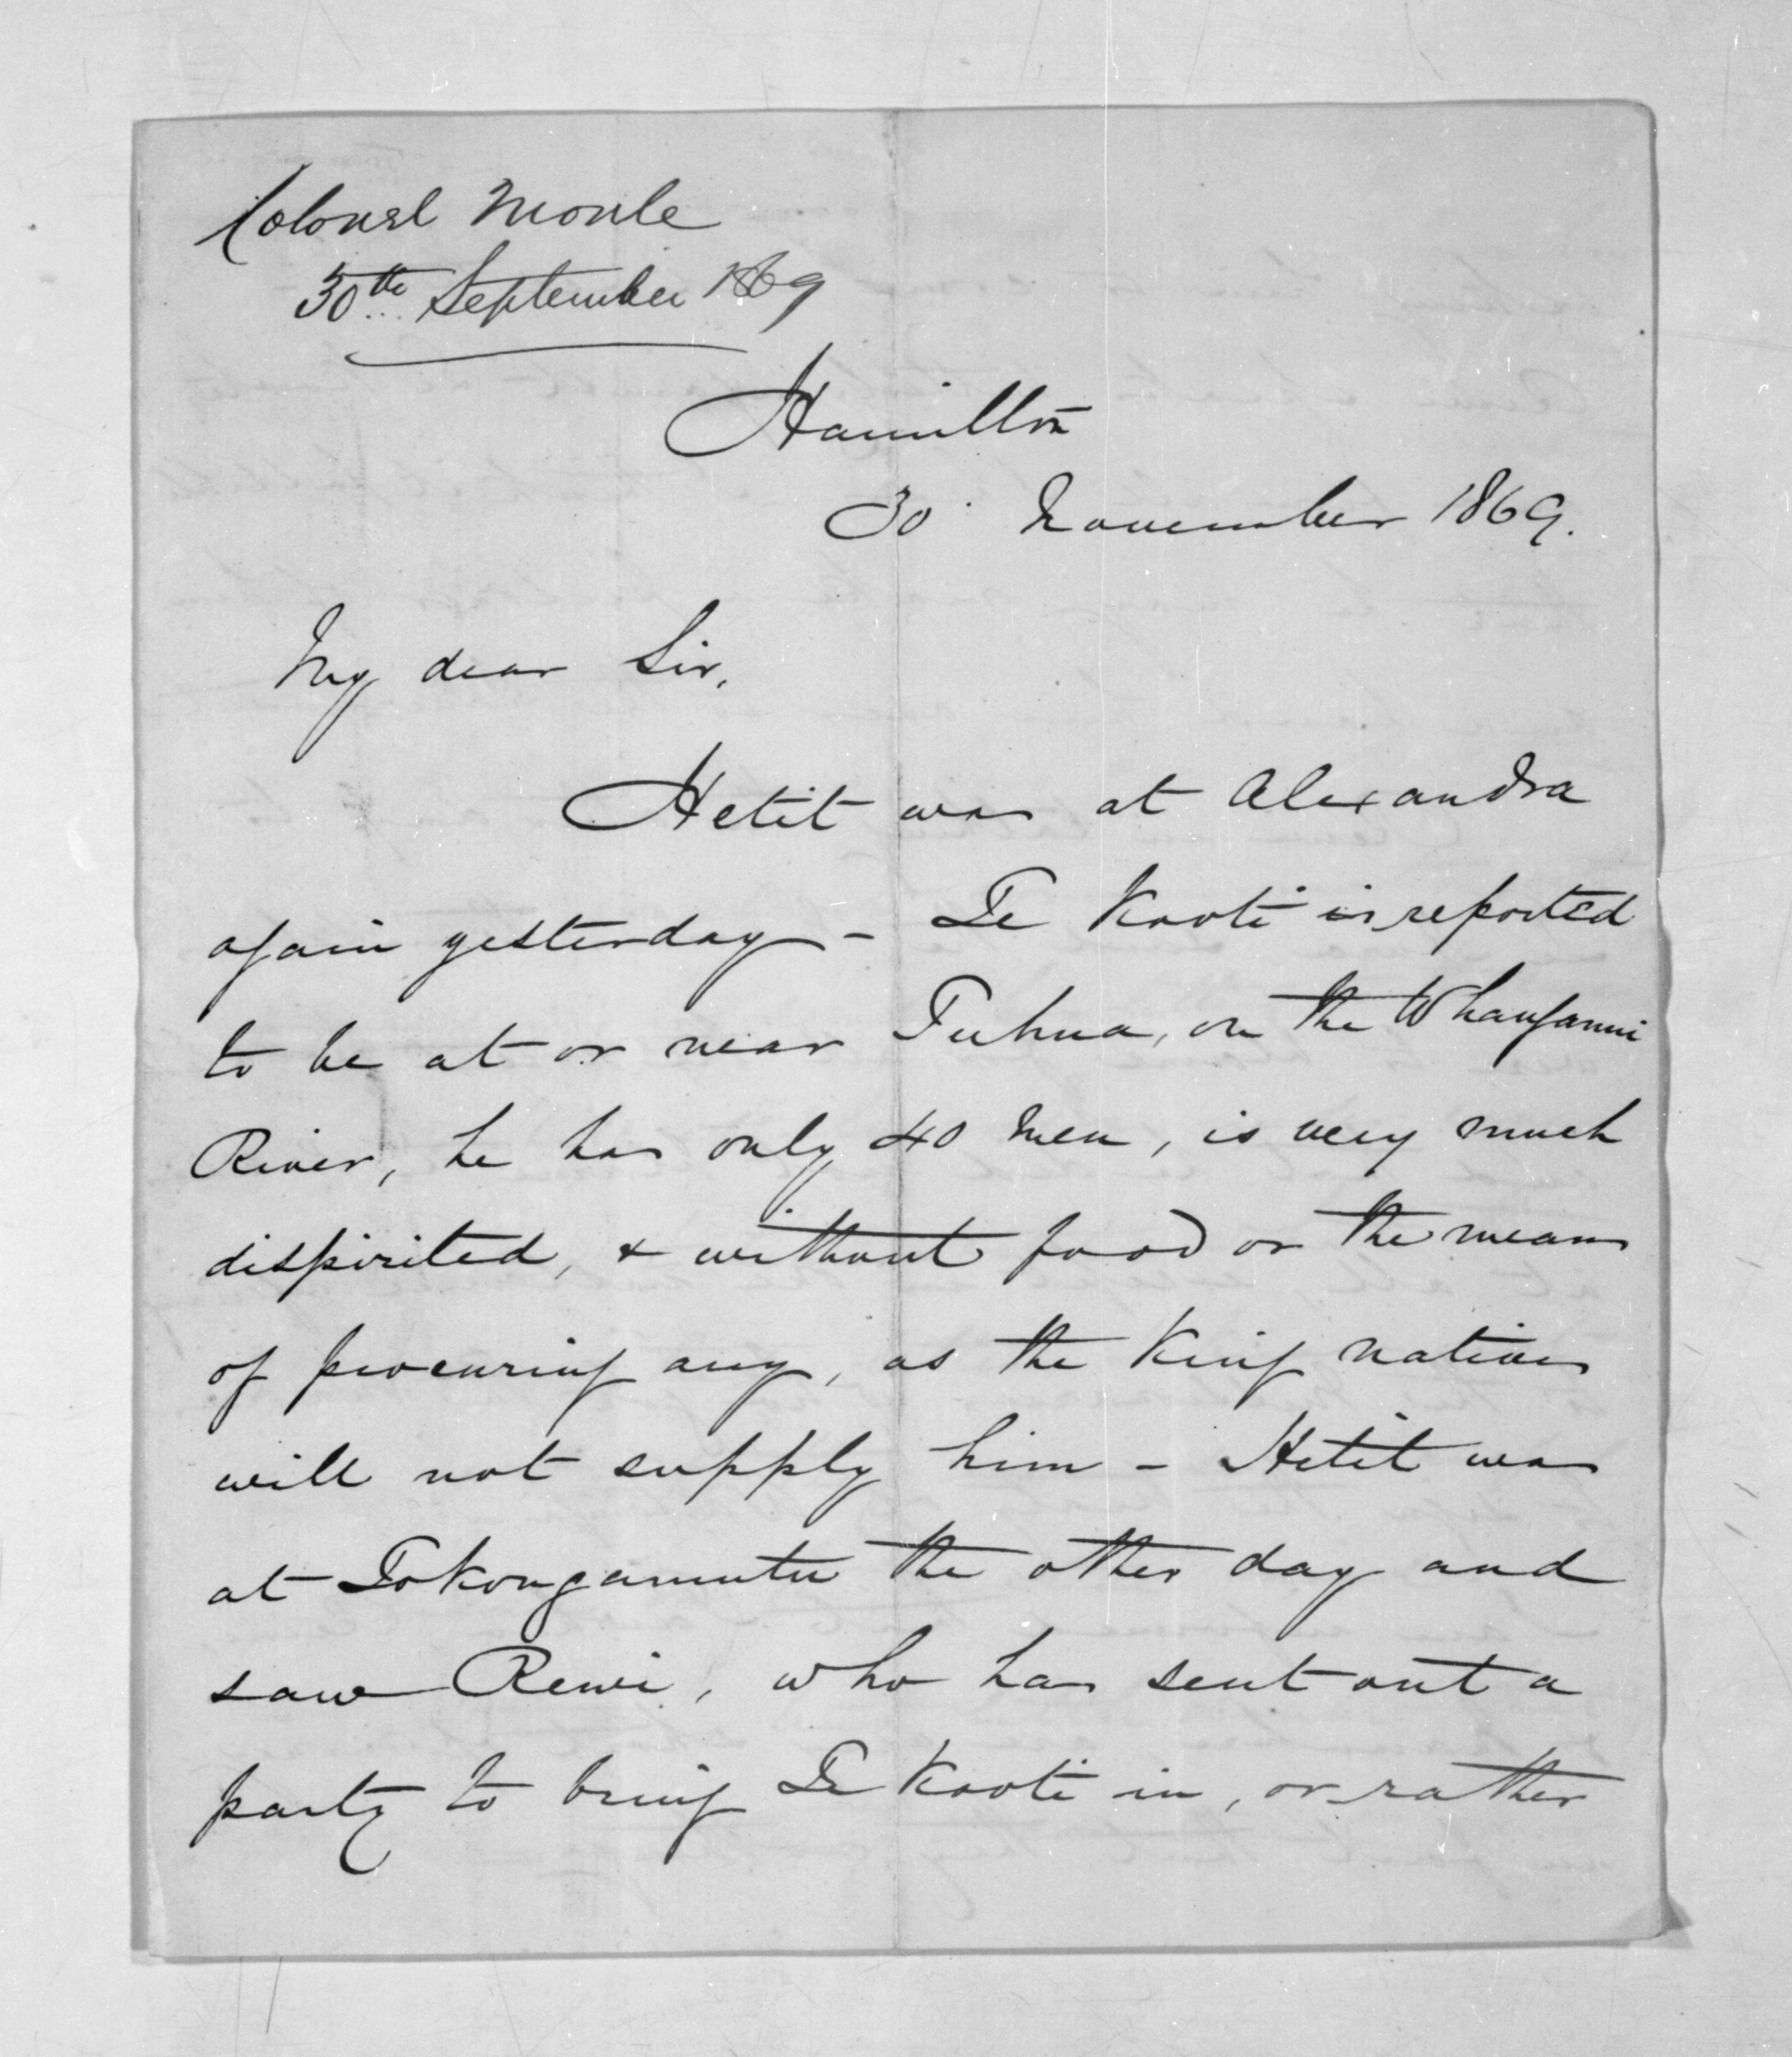 Colonel Moule
30th September 1869
Hamilton
30 November 1869.
My dear Sir,
Hetit was at Alexandra
again yesterday - Te Kooti is reported
to be at or near Tuhua, on the Whanganui
River, he has only 40 men, is very much
dispirited, & without food or the means
of procuring any, as the King natives
will not supply him - Hetit was
at Tokongamutu the other day and
saw Rewi, who has sent out a
party to bring Te Kooti in, or rather